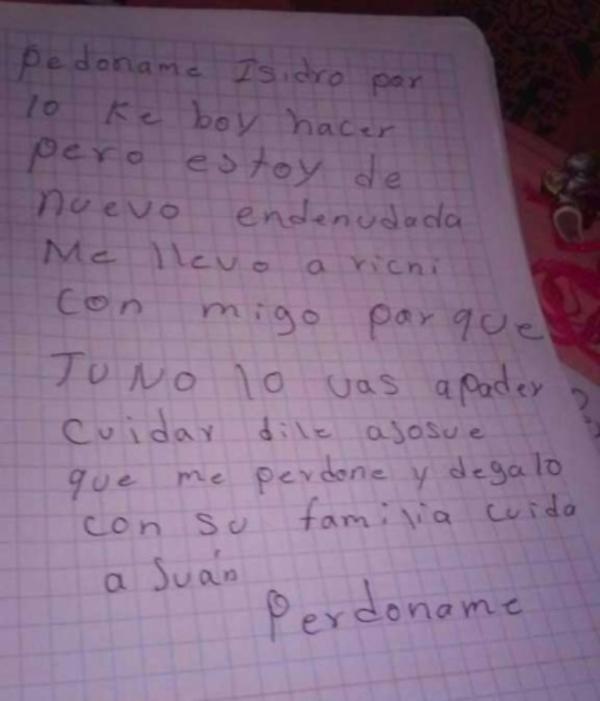 Pedoname Isidro por
lo Ke boy hacer
pero estoy de
nuevo endenudada
Me llevo a ricni
con migo par que
TU NO lo vas apader
cuidar dile ajosue
que me perdone y degalo
con su familia cuida
a Juan
Perdoname